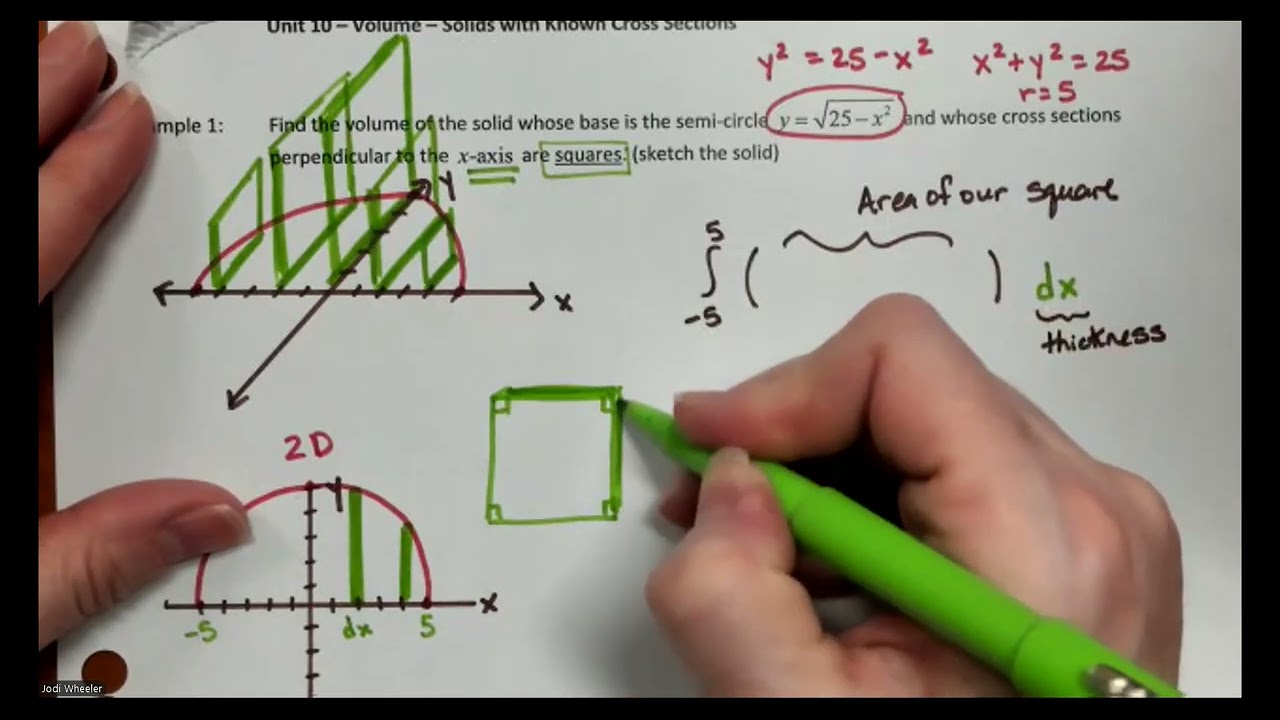 Unit 10 – Volume – Solids with Known Cross Sections
y² = 25 - x² x² + y² = 25
r = 5
mple 1: Find the volume of the solid whose base is the semi-circle y = √25 − x² and whose cross sections
perpendicular to the x-axis are squares. (sketch the solid)
y
Area of our square
5
∫ ( ) dx
-5
x
thickness
2D
y
x
-5 dx 5
Jodi Wheeler